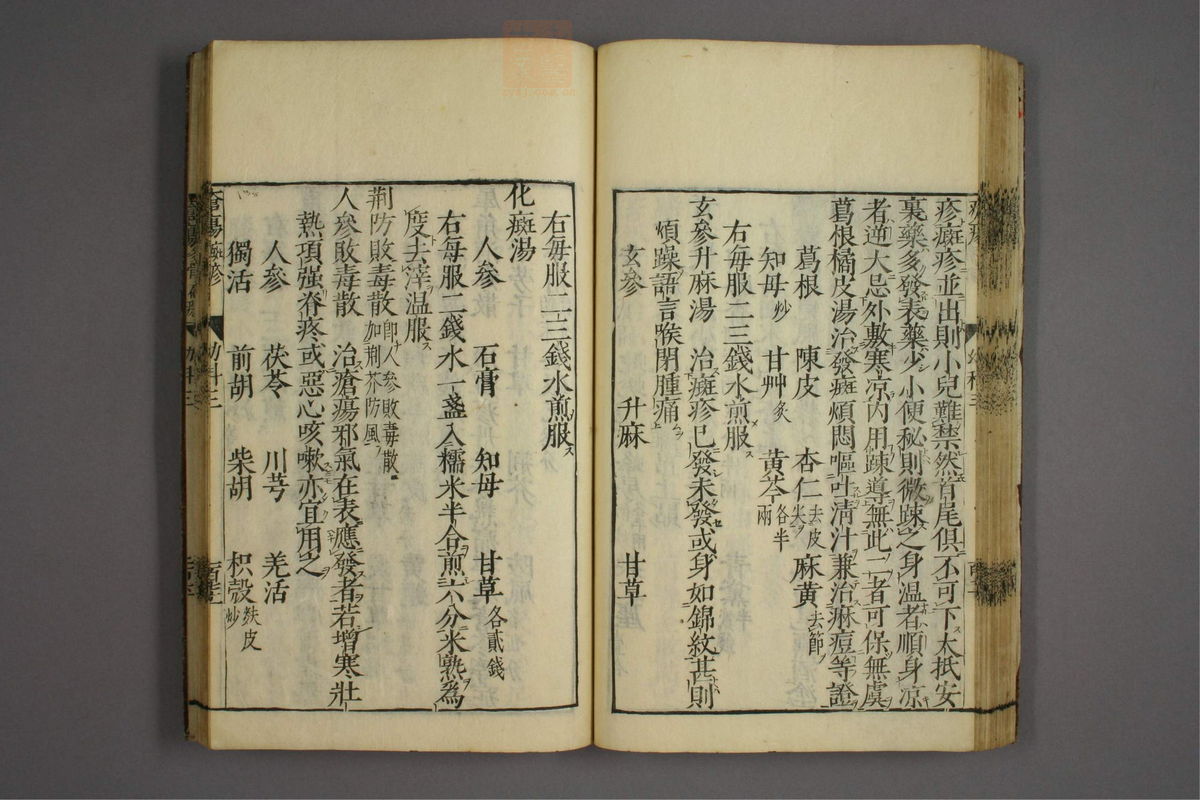 疹癍疹並出則小兒難禁然首尾俱不可下大抵安
裏藥多發表藥少小便秘則微踈之身温者順身凉
者逆大忌外敷寒凉内用踈導無此二者可保無虞
葛根橘皮湯治發癍煩悶嘔吐淸汁兼治麻痘等證
葛根 陳皮 杏仁去皮尖 麻黄去節
知母炒 甘艸炙 黄芩各半兩
右每服二三錢水煎服
玄參升麻湯 治癍疹已發未發或身如錦紋甚則
煩躁語言喉閉腫痛
玄參 升麻 甘草
右每服二三錢水煎服
化癍湯
人參 石膏 知母 甘草各貳錢
右每服二錢水一盞入糯米半合煎六分米熟爲
度去滓温服
荆防敗毒散即人參敗毒散加荆芥防風
人參敗毒散 治瘡瘍邪氣在表應發者若增寒壯
熱項强脊疼或惡心咳嗽亦宜用之
人參 茯苓 川芎 羌活
獨活 前胡 柴胡 枳殻麸皮炒
瘡瘍癍疹 幼科三